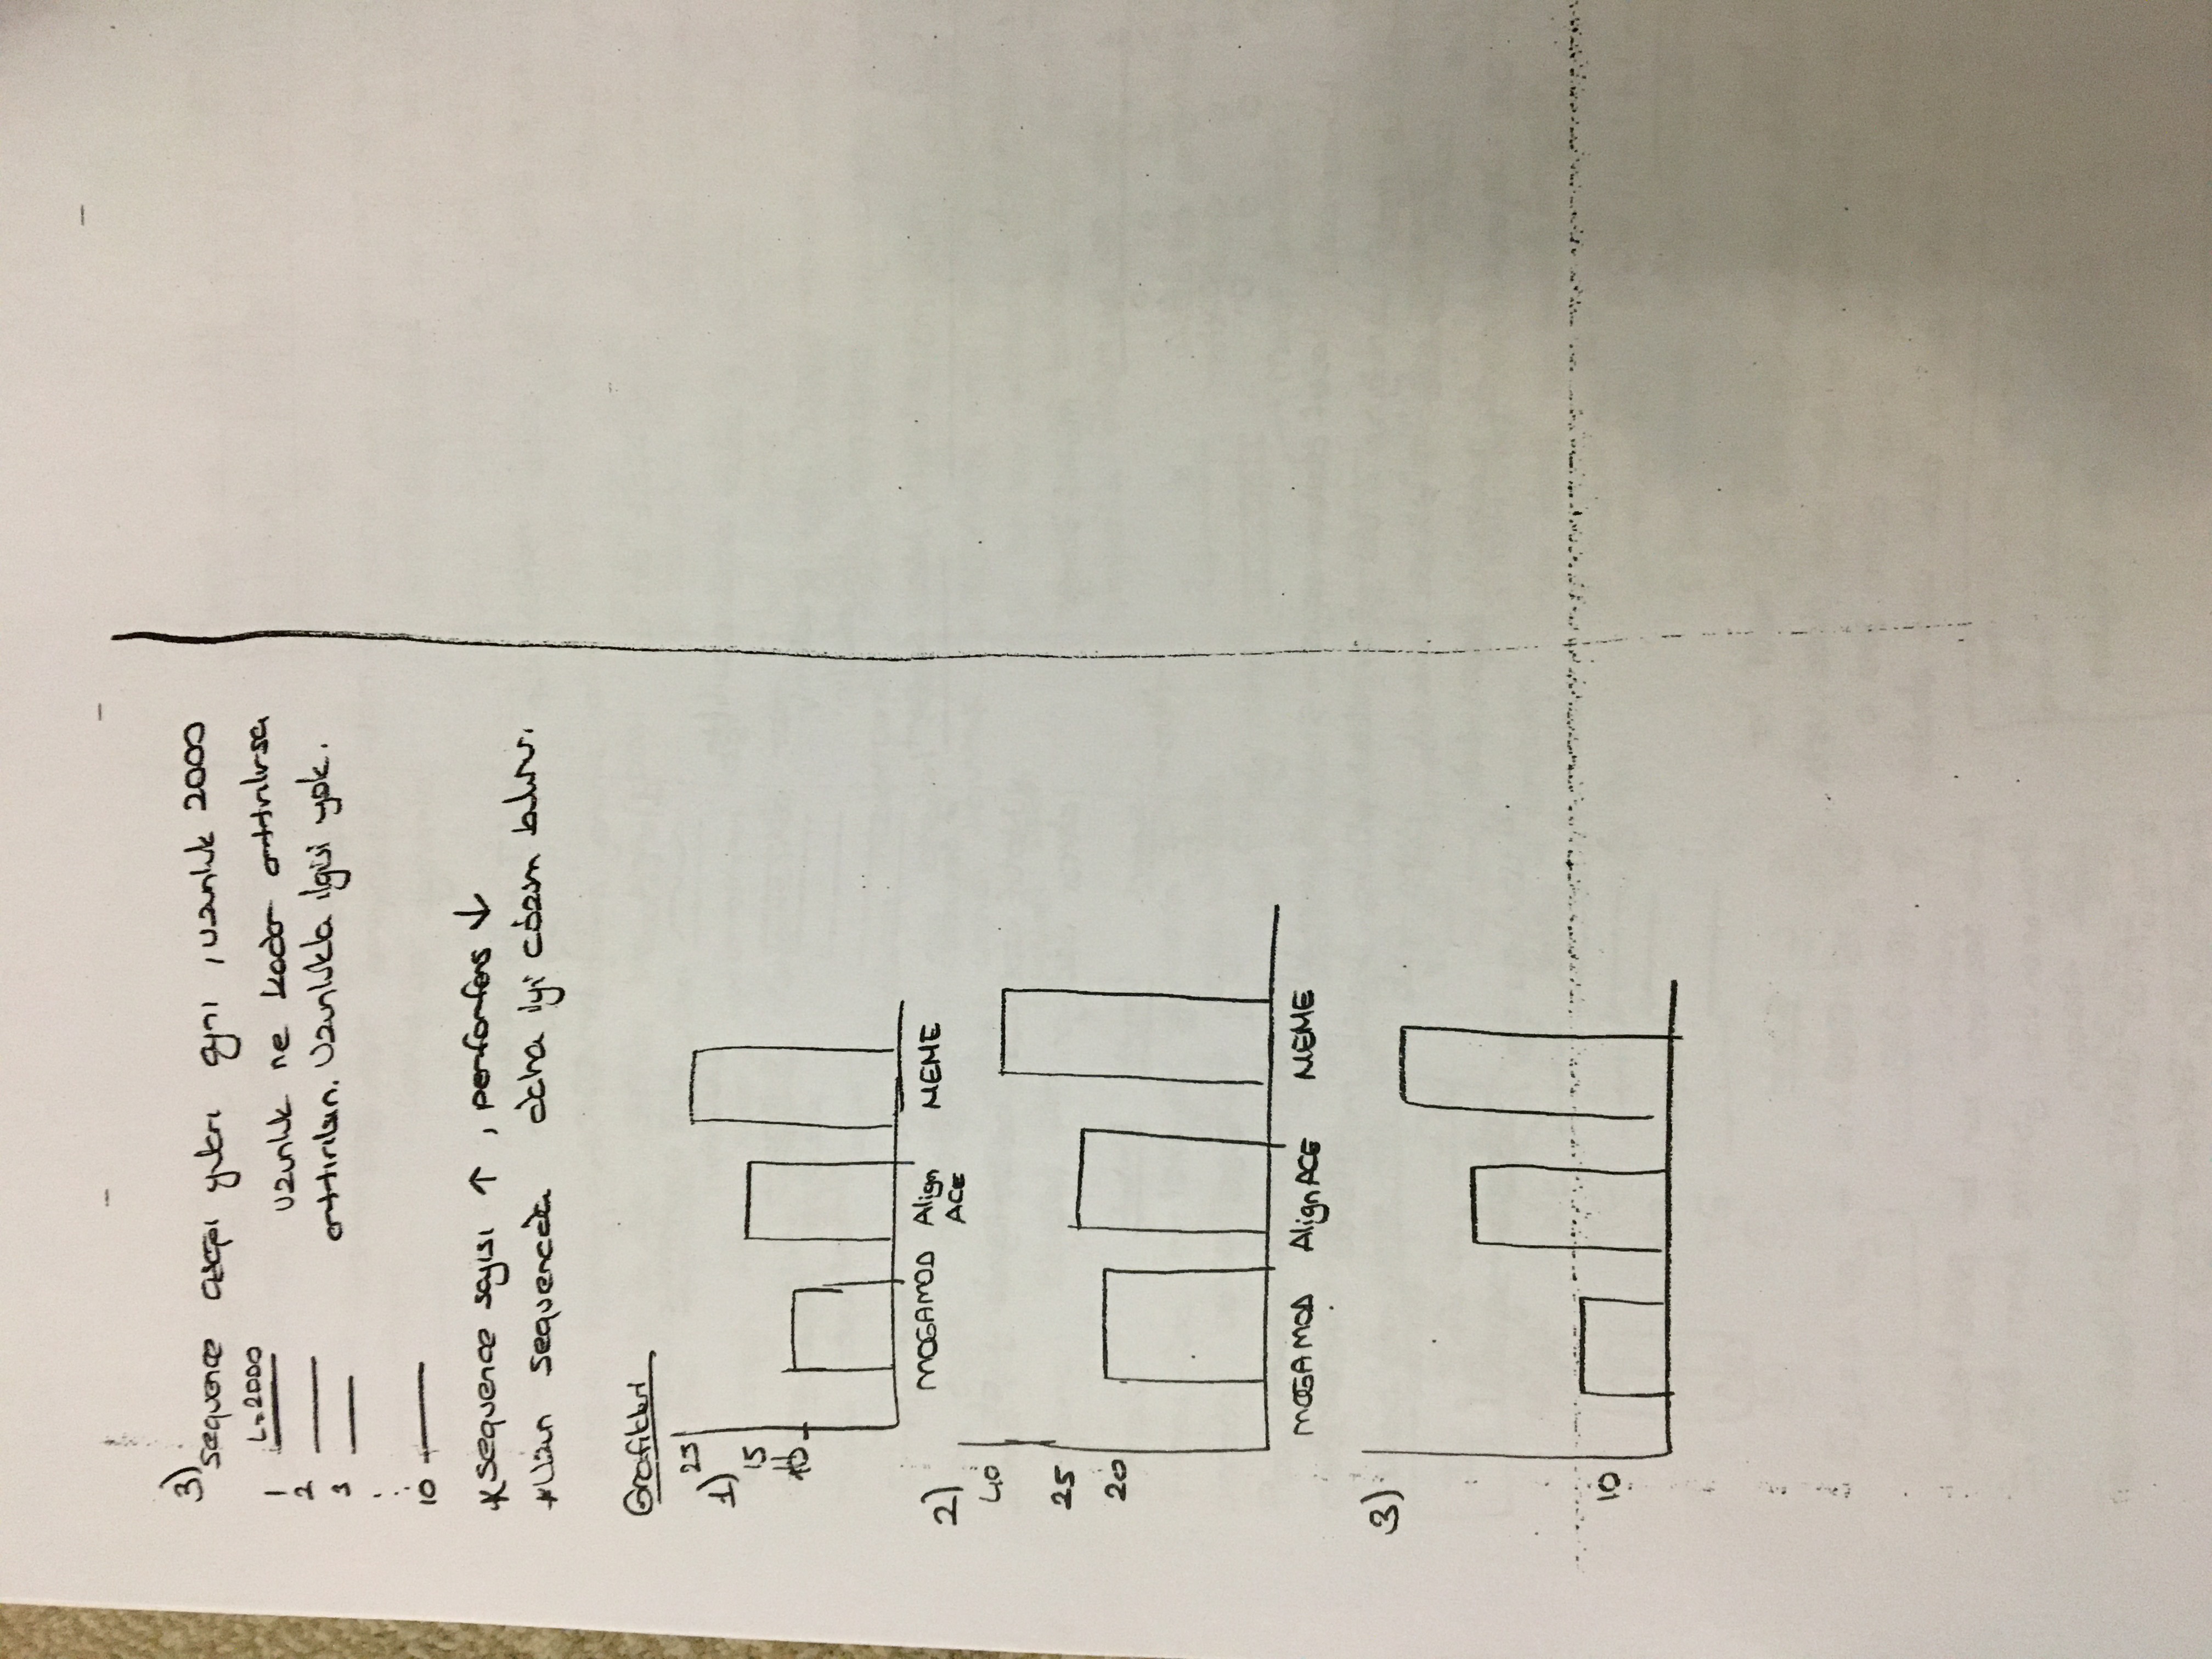 3) sequence aşağı yukarı aynı, uzunluk 2000
L=2000
1
uzunluk ne kadar arttırılırsa
2
arttırılsın. Uzunlukla ilgisi yok.
3
10
* sequence sayısı ↑ , perfonfors ↓
* Uzun sequencada daha iyi cözüm bulunur.
Grafikleri
1)
23
15
10
MOGAMOD Align ACE MEME
2)
40
25
20
MOGAMOD AlignACE MEME
3)
10